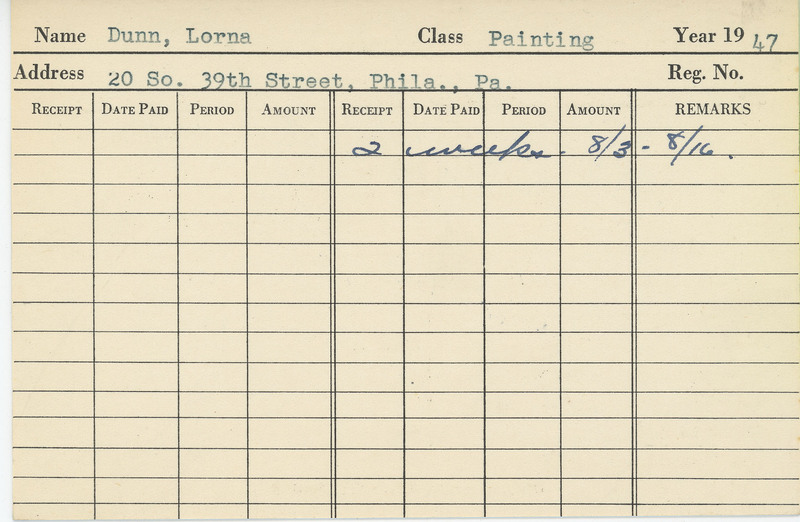 Name Dunn, Lorna Class Painting Year 1947
Address 20 So. 39th Street, Phila., Pa. Reg. No.
RECEIPT DATE PAID PERIOD AMOUNT RECEIPT DATE PAID PERIOD AMOUNT REMARKS
2 weeks - 8/3 - 8/16.